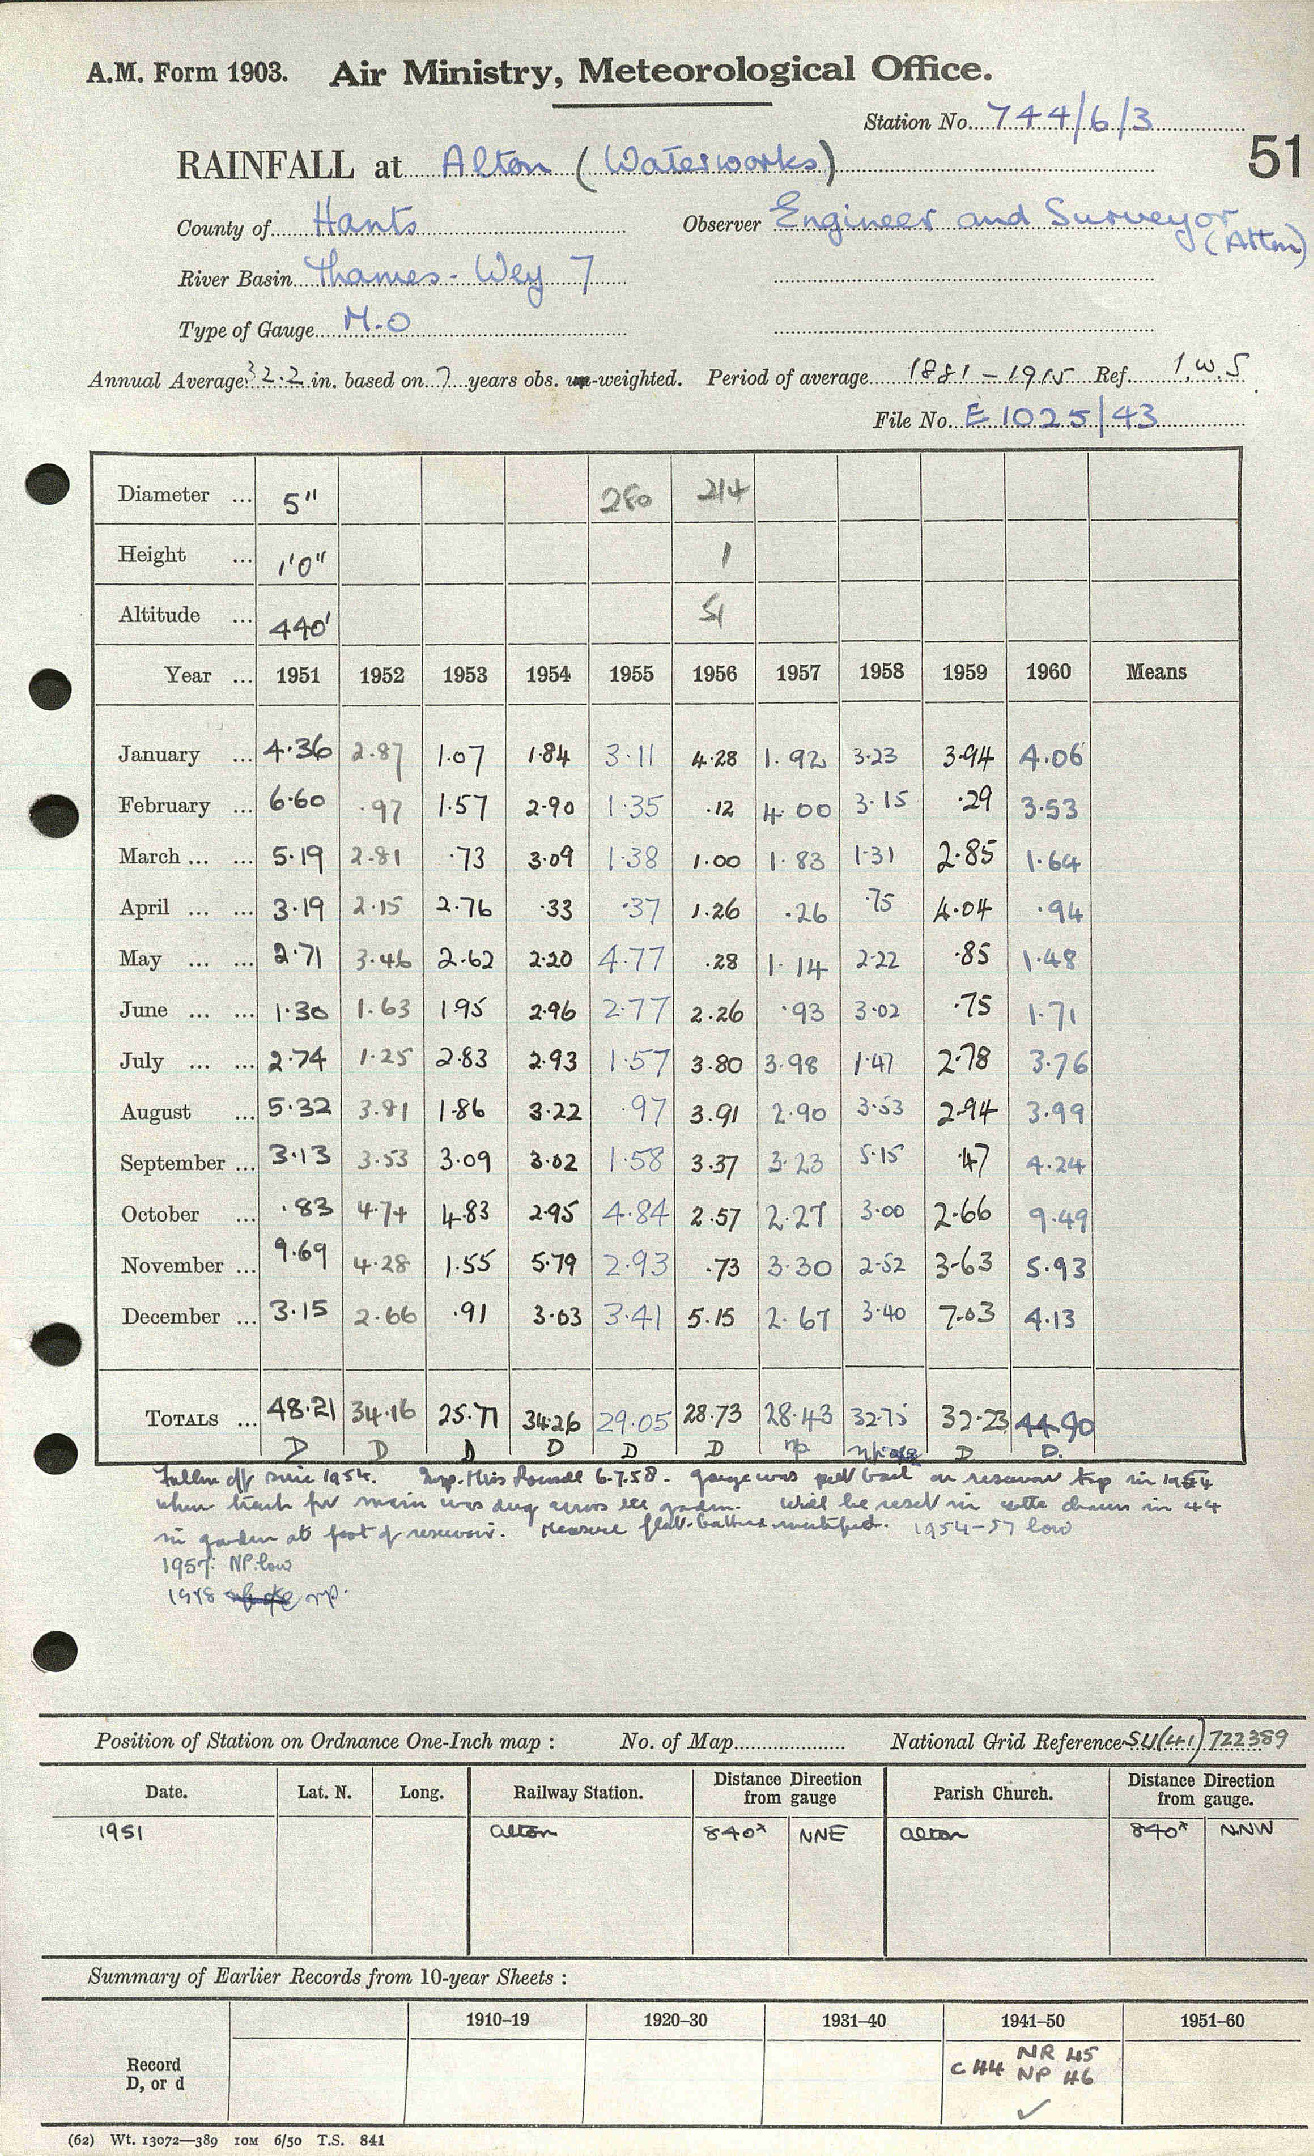 A.M. Form 1903. Air Ministry, Meteorological Office.
Station No. 744/6/3
51
RAINFALL at Alton (Waterworks)
County of Hants Observer Engineer and Surveyor
(Alton)
River Basin Thames - Wey 7
Type of Gauge M.O
Annual Average 32.2 in. based on 7 years obs. un-weighted. Period of average 1881 - 1915 Ref. I.W.S
File No. E 1025/43
Diameter ... 5" 280 214
Height ... 1'0" 1
Altitude ... 440' 51
Year ... 1951 1952 1953 1954 1955 1956 1957 1958 1959 1960 Means
January ... 4.36 2.87 1.07 1.84 3.11 4.28 1.92 3.23 3.94 4.06
February ... 6.60 .97 1.57 2.90 1.35 .12 4.00 3.15 .29 3.53
March ... ... 5.19 2.81 .73 3.09 1.38 1.00 1.83 1.31 2.85 1.64
April ... ... 3.19 2.15 2.76 .33 .37 1.26 .26 .75 4.04 .94
May ... ... 2.71 3.46 2.62 2.20 4.77 .28 1.14 2.22 .85 1.48
June ... ... 1.30 1.63 1.95 2.96 2.77 2.26 .93 3.02 .75 1.71
July ... ... 2.74 1.25 2.83 2.93 1.57 3.80 3.98 1.47 2.78 3.76
August ... 5.32 3.81 1.86 3.22 .97 3.91 2.90 3.53 2.94 3.99
September ... 3.13 3.53 3.09 3.02 1.58 3.37 3.23 5.15 .47 4.24
October ... .83 4.74 4.83 2.95 4.84 2.57 2.27 3.00 2.66 9.49
November ... 9.69 4.28 1.55 5.79 2.93 .73 3.30 2.52 3.63 5.93
December ... 3.15 2.66 .91 3.03 3.41 5.15 2.67 3.40 7.03 4.13
TOTALS ... 48.21 34.16 25.77 34.26 29.05 28.73 28.43 32.75 32.23 44.90
D D D D D D np D D.
Fallen off since 1954. Insp. Miss 6.7.58. gauge was put back on reservoir top in 1954
when trench for main was dug across garden. Will be reset in
in garden at foot of reservoir. Measure flat. 1954-57 low
1957. NP. low
1958 np.
Position of Station on Ordnance One-Inch map : No. of Map National Grid Reference SU(41) 722389
Date. Lat. N. Long. Railway Station. Distance from gauge Direction Parish Church. Distance from gauge. Direction
1951 Alton 840x NNE Alton 840x NNW
Summary of Earlier Records from 10-year Sheets :
1910–19 1920–30 1931–40 1941–50 1951–60
Record
D, or d
NR 45
C 44 NP 46
(62) Wt. 13072—389 10M 6/50 T.S. 841